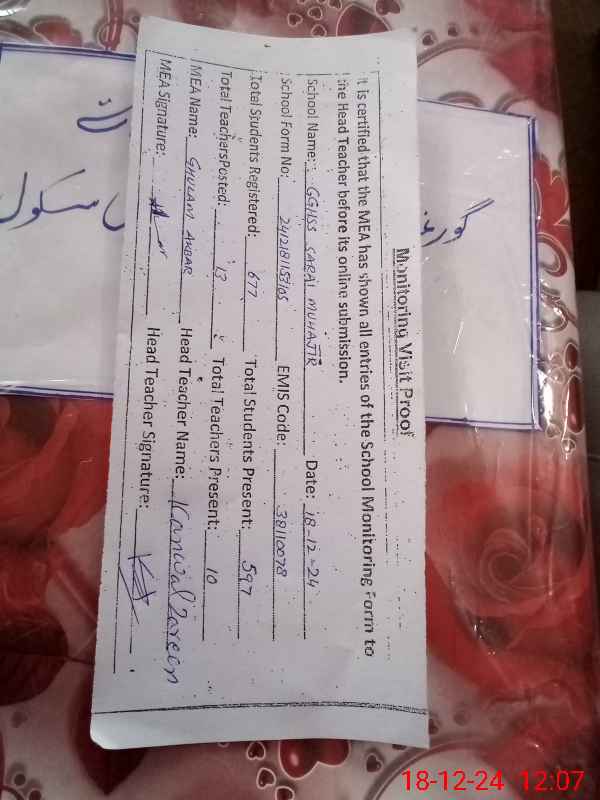 Monitoring Visit Proof
It is certified that the MEA has shown all entries of the School Monitoring Form to
the Head Teacher before its online submission.
School Name: GGHSS SARAI MUHAJIR Date: 18-12-24
School Form No: EMIS Code: 38110078
Total Students Registered: 677 Total Students Present: 597
Total TeachersPosted: 13 Total Teachers Present: 10
MEA Name: GHULAM AKBAR Head Teacher Name: Kanwal Zareen
MEA Signature: Head Teacher Signature:
سکول
18-12-24 12:07